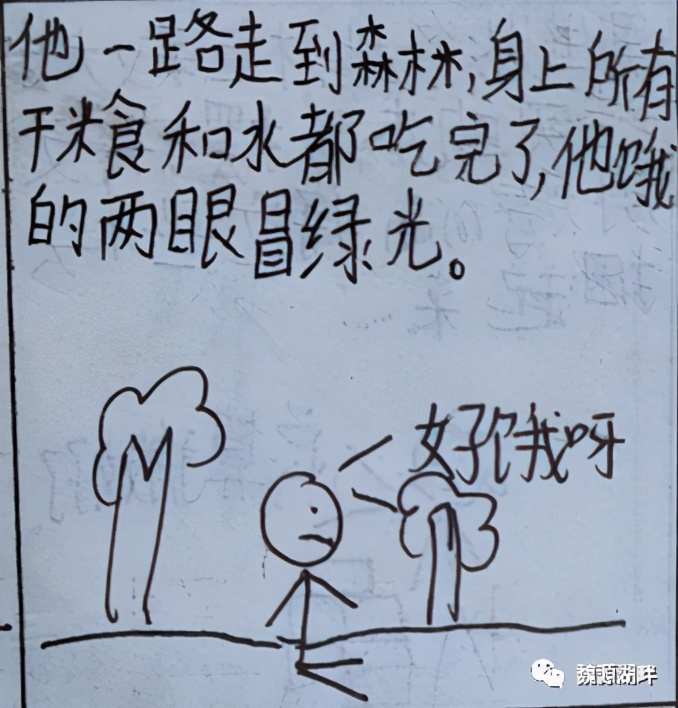 他一路走到森林,身上所有
干粮食和水都吃完了,他饿
的两眼冒绿光。
好饿我呀
魏源湖畔